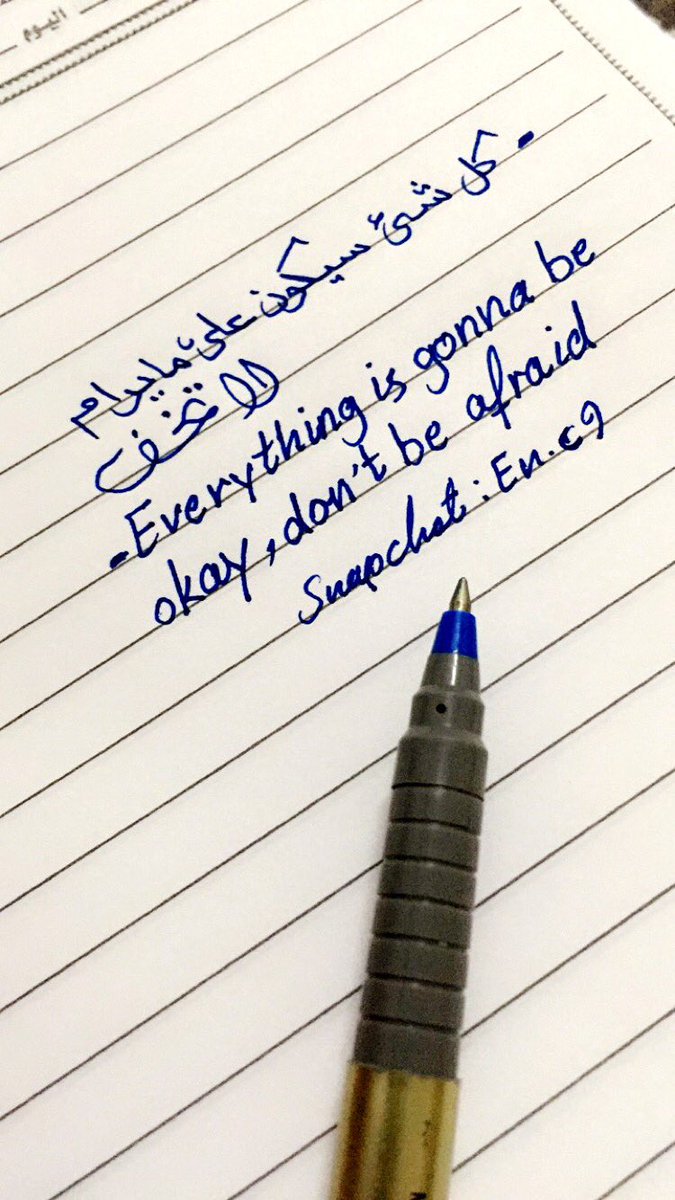 اليوم
- كل شئ سيكون على ما يرام
لا تخف
- Everything is gonna be
okay, don't be afraid
Snapchat: En.c9